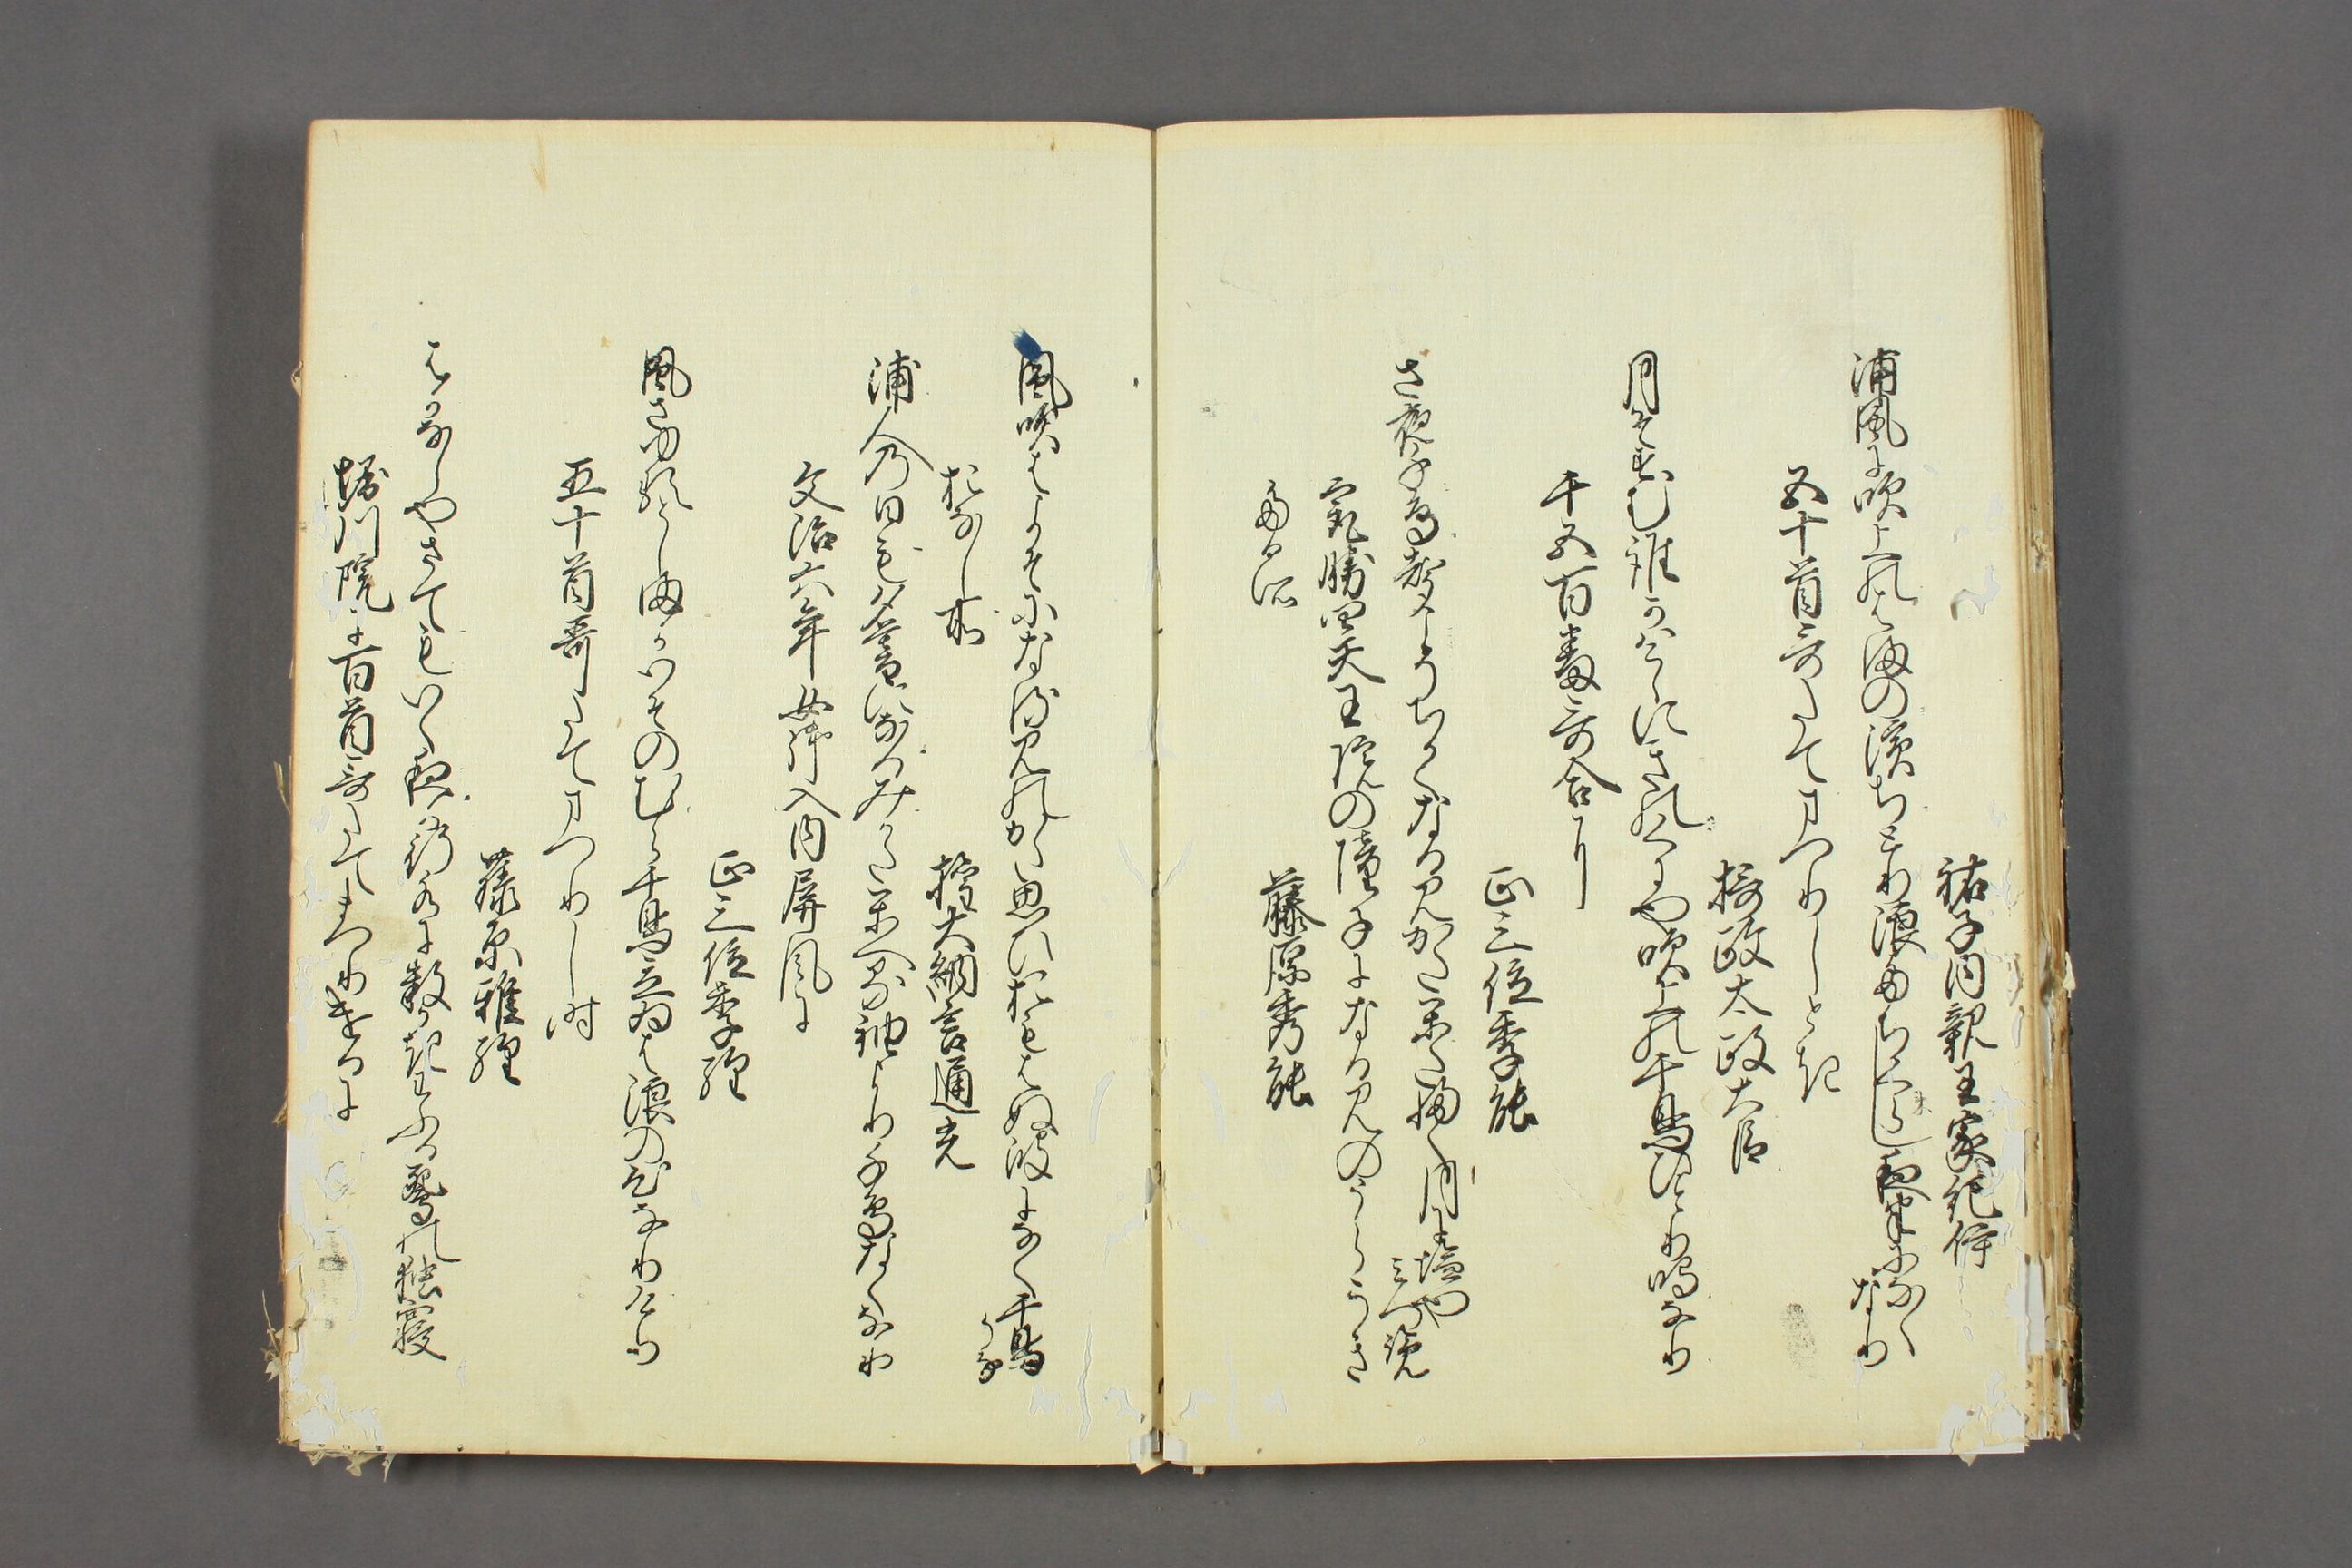 祐子内親王家紀伊
浦風に吹上のはまの濱ちとり浪たちくらし夜半になく
なり
五十首哥たてまつりしとき
摂政太政大臣
月そすむ誰かはこゝにきのくにや吹上の千鳥ひとり鳴なり
千五百番哥合に
正三位季能
さ夜千鳥聲こそちかくなるみかたかたふく月に塩や
みつ覧
最勝四天王院の障子になるみのうらかき
たる所
藤原秀能
風吹はよそになるみのかた思ひおもはぬ波になく千鳥
かな
おなし所
権大納言通光
浦人の日も夕暮になるみかたかへる袖より千鳥なくなり
文治六年女御入内屏風に
正三位季経
風さゆるとしまかいそのむら千鳥立ゐは浪の心なりけり
五十首哥たてまつりし時
藤原雅経
はかなしやさてもいく夜か行水に数かきわふる鴛の独寝
堀川院に百首哥たてまつりけるに